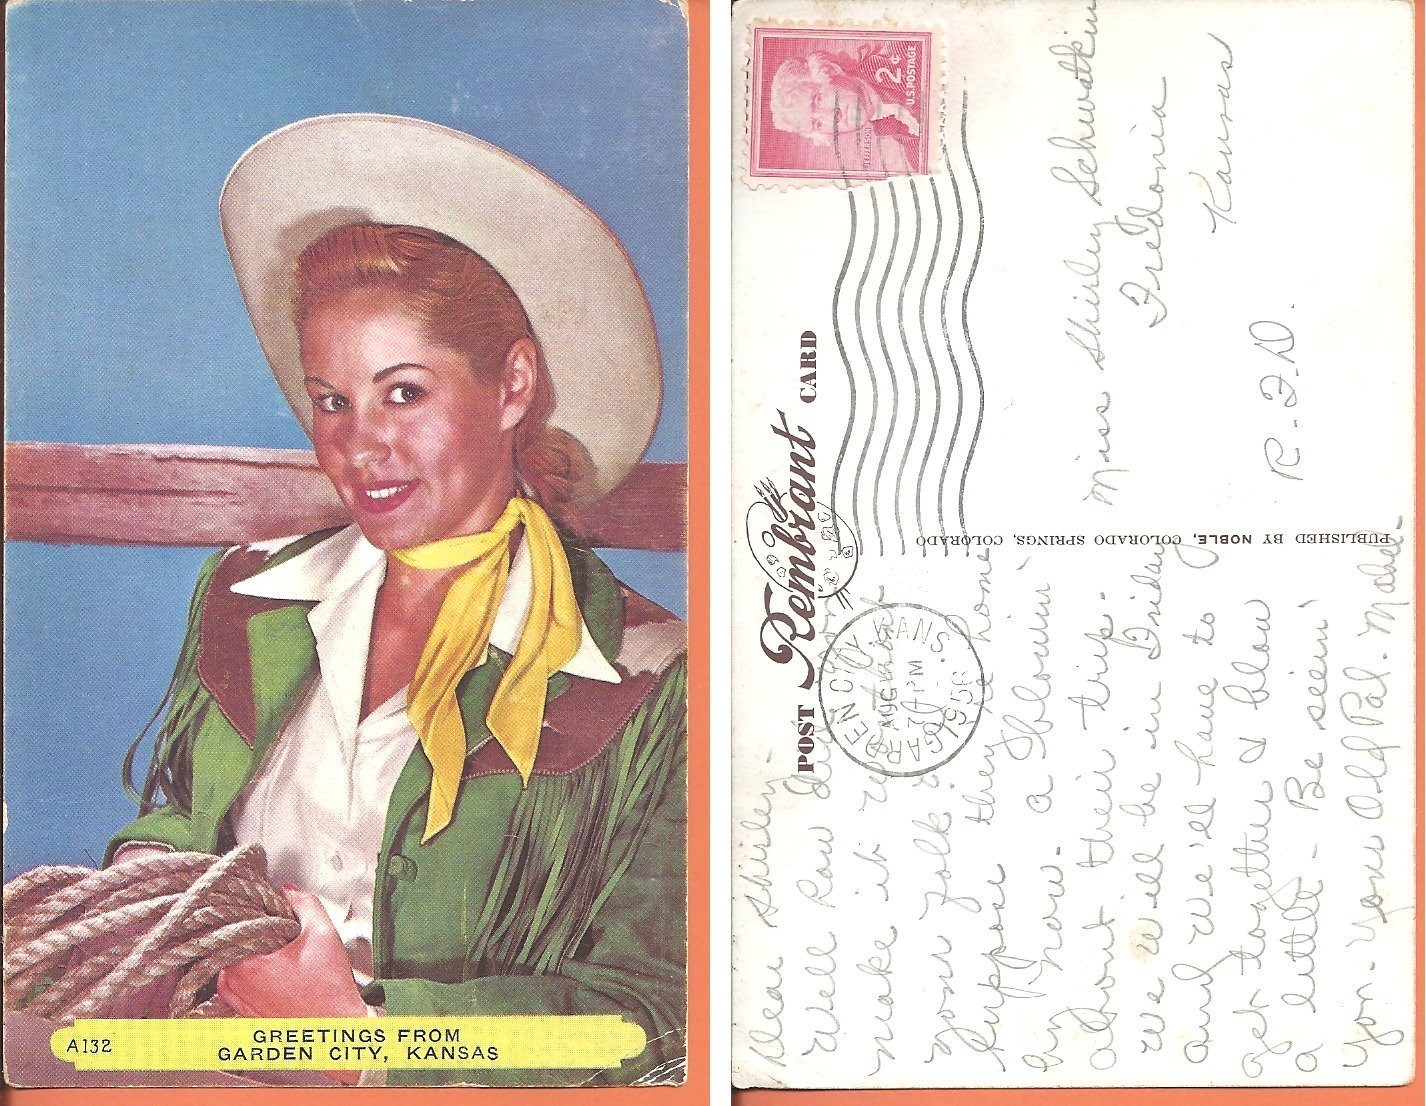 A132
GREETINGS FROM
GARDEN CITY, KANSAS
2¢
U.S. POSTAGE
JEFFERSON
POST Rembrant CARD
GARDEN CITY KANS.
AUG
PM
1956
PUBLISHED BY NOBLE, COLORADO SPRINGS, COLORADO
Miss Shirley Schwatkin
Fredonia
Kansas
R.F.D.
Dear Shirley-
Well how did
make it
your folk
suppose their home
by now. a blowin'
about their trip.
We will be in Friday
and we'll have to
get together & blow
a little - Be seein'
you - Your Old Pal. Mabel